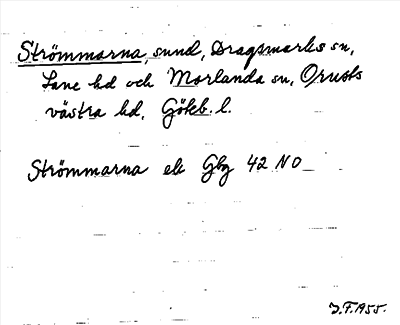 Strömmarna, sund, Dragsmarks sn,
Lane hd och Morlanda sn, Orusts
västra hd, Göteb. l.
Strömmarna ek Gbg 42 NO
J.F. 1955.